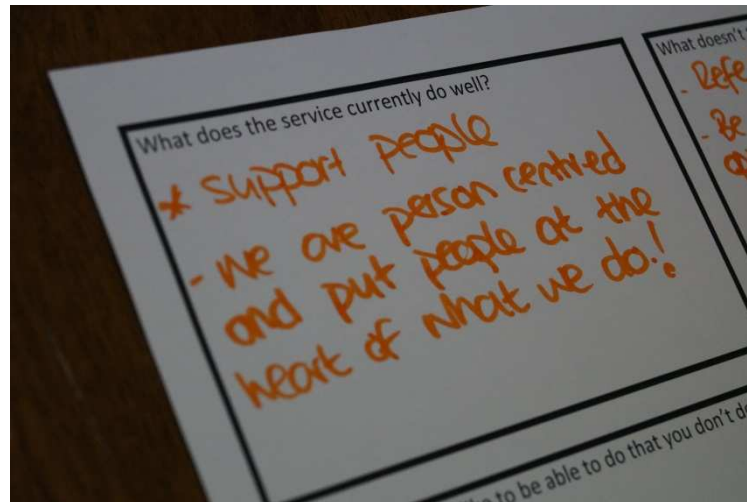 What does the service currently do well?
* support people
- we are person centred
and put people at the
heart of what we do!
What doesn't
- Refe
- Be
to be able to do that you don't